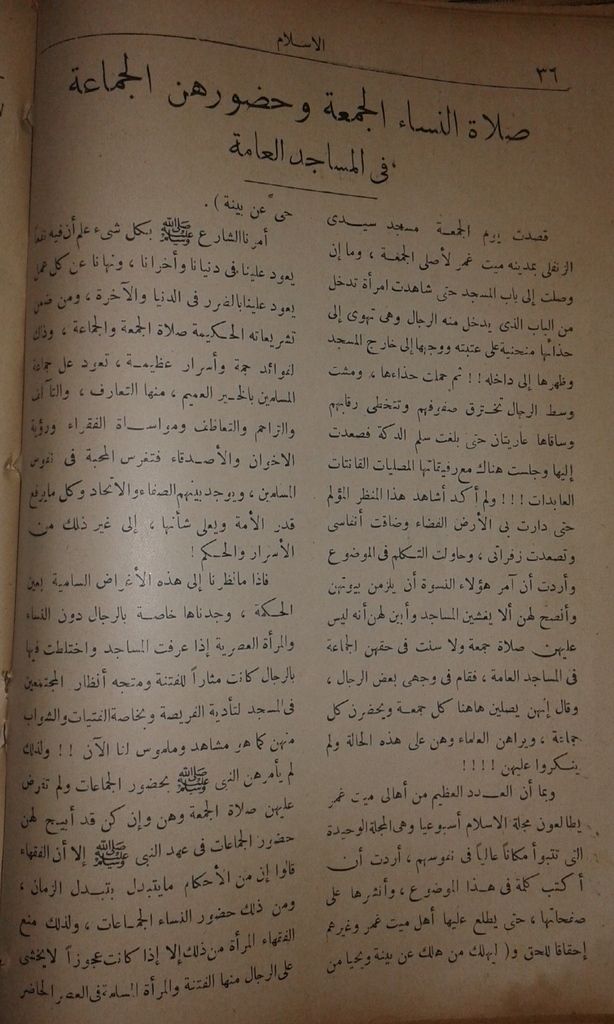 ٣٦
الاسلام
صلاة النساء الجمعة وحضورهن الجماعة
فى المساجد العامة
قصدت يوم الجمعة مسجد سيدى
الزنفلى بمدينه ميت غمر لأصلى الجمعة ، وما إن
وصلت إلى باب المسجد حتى شاهدت امرأة تدخل
من الباب الذى يدخل منه الرجال وهى تهوى إلى
حذائها منحنية على عتبته ووجهها إلى خارج المسجد
وظهرها إلى داخله !! ثم حملت حذاءها ، ومشت
وسط الرجال تخترق صفوفهم وتتخطى رقابهم
وساقاها عاريتان حتى بلغت سلم الدكة فصعدت
إليها وجلست هناك مع رفيقاتها المصليات القانتات
العابدات !!! ولم أكد أشاهد هذا المنظر المؤلم
حتى دارت بى الأرض الفضاء وضاقت أنفاسى
وتصعدت زفراتى ، وحاولت التكلم فى الموضوع
وأردت أن آمر هؤلاء النسوة أن يلزمن بيوتهن
وأنصح لهن ألا يغشين المساجد وأبين لهن أنه ليس
عليهن صلاة جمعة ولا سنت فى حقهن الجماعة
فى المساجد العامة ، فقام فى وجهى بعض الرجال ،
وقال إنهن يصلين هاهنا كل جمعة ويحضرن كل
جماعة ، ويراهن العلماء وهن على هذه الحالة ولم
ينكروا عليهن !!!!
وبما أن العدد العظيم من أهالى ميت غمر
يطالعون مجلة الاسلام أسبوعيا وهى المجلة الوحيدة
التى تتبوأ مكاناً عالياً فى نفوسهم ، أردت أن
أكتب كلمة فى هذا الموضوع ، وأنشرها على
صفحاتها ، حتى يطلع عليها أهل ميت غمر وغيرهم
إحقاقا للحق و( ليهلك من هلك عن بينة ويحيا من
حى عن بينة ) .
أمرنا الشارع ﷺ بكل شىء علم أن فيه نفعا
يعود علينا فى دنيانا وأخرانا ، ونهانا عن كل عمل
يعود علينا بالضرر فى الدنيا والآخرة ، ومن ضمن
تشريعاته الحكيمة صلاة الجمعة والجماعة ، وذلك
لفوائد جمة وأسرار عظيمة ، تعود على جماعة
المسلمين بالخير العميم ، منها التعارف ، والتآلف
والتراحم والتعاطف ومواساة الفقراء ورؤية
الاخوان والأصدقاء فتغرس المحبة فى نفوس
المسلمين ، ويوجد بينهم الصفاء والاتحاد وكل ما يرفع
قدر الأمة ويعلى شأنها ، إلى غير ذلك من
الأسرار والحكم !
فاذا ما نظرنا إلى هذه الأغراض السامية بعين
الحكمة ، وجدناها خاصة بالرجال دون النساء
والمرأة العصرية إذا عرفت المساجد واختلطت فيها
بالرجال كانت مثاراً للفتنة ومتجه أنظار المجتمعين
فى المسجد لتأدية الفريضة وبخاصة الفتيات والشواب
منهن كما هو مشاهد وملموس لنا الآن !! ولذلك
لم يأمرهن النبى ﷺ بحضور الجماعات ولم تفرض
عليهن صلاة الجمعة وهن وإن كن قد أبيح لهن
حضور الجماعات فى عهد النبى ﷺ إلا أن الفقهاء
قالوا إن من الأحكام ما يتبدل بتبدل الزمان ،
ومن ذلك حضور النساء الجماعات ، ولذلك منع
الفقهاء المرأة من ذلك إلا إذا كانت عجوزاً لا يخشى
على الرجال منها الفتنة والمرأة المسلمة فى العصر الحاضر